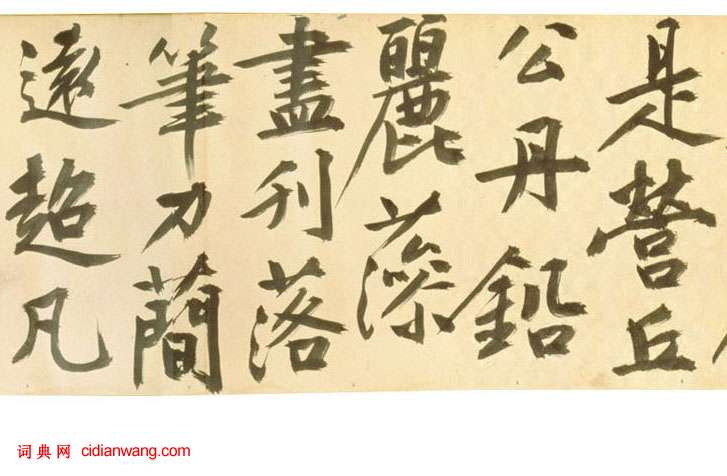 是營丘
公丹鉛
麗藻
盡刊落
筆力簡
遠超凡
词典网 cidianwang.com